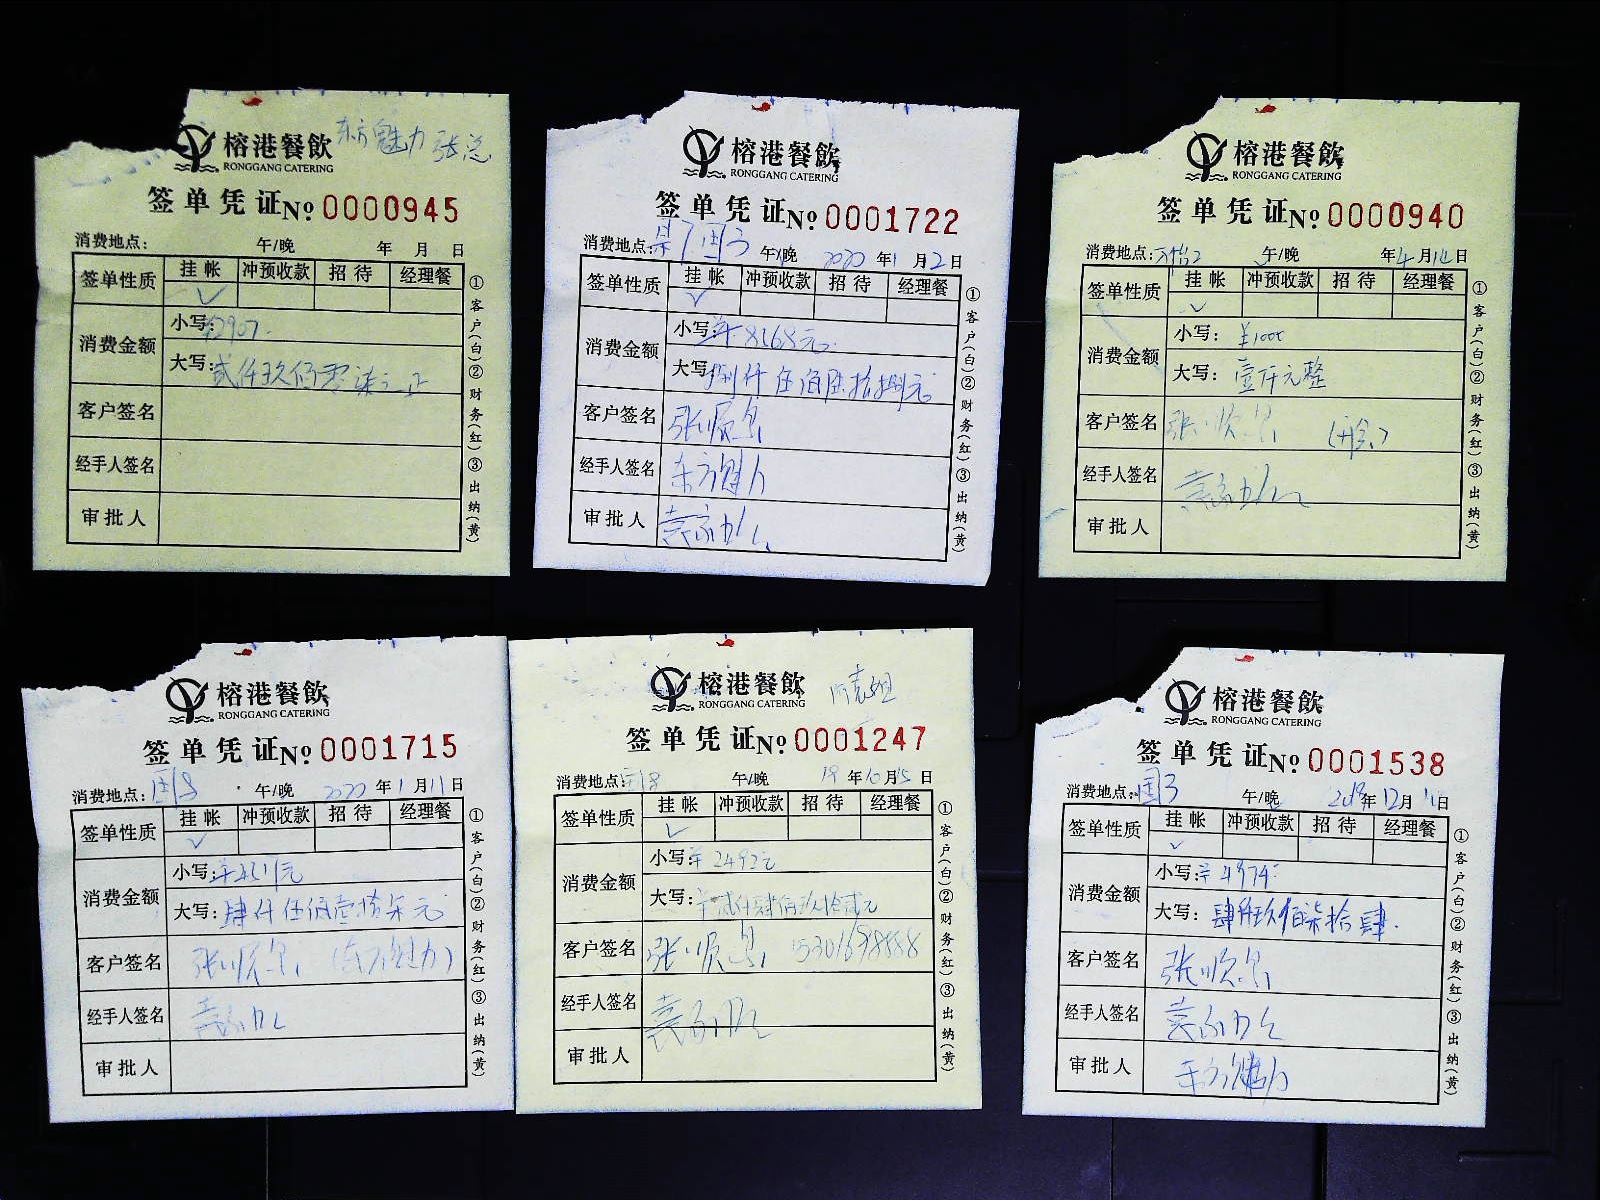 榕港餐飲 东方魅力 张总
RONGGANG CATERING
签单凭证 No 0000945
消费地点: 午/晚 年 月 日
签单性质 挂帐 冲预收款 招待 经理餐
✓
消费金额 小写: ¥2907.
大写: 贰仟玖佰零柒元正
客户签名
经手人签名
审批人
①客户(白)②财务(红)③出纳(黄)
榕港餐飲
RONGGANG CATERING
签单凭证 No 0001722
消费地点: 午/晚 2020年1月2日
签单性质 挂帐 冲预收款 招待 经理餐
✓
消费金额 小写: 8568元
大写: 捌仟伍佰陆拾捌元
客户签名 张顺
经手人签名 东方魅力
审批人
①客户(白)②财务(红)③出纳(黄)
榕港餐飲
RONGGANG CATERING
签单凭证 No 0000940
消费地点: 午/晚 年4月14日
签单性质 挂帐 冲预收款 招待 经理餐
✓
消费金额 小写: ¥1000
大写: 壹仟元整
客户签名 张顺
经手人签名
审批人
①客户(白)②财务(红)③出纳(黄)
榕港餐飲
RONGGANG CATERING
签单凭证 No 0001715
消费地点: 国8 午/晚 2020年1月11日
签单性质 挂帐 冲预收款 招待 经理餐
✓
消费金额 小写:
大写: 肆仟伍佰壹拾柒元
客户签名 张顺 (东方魅力)
经手人签名
审批人
①客户(白)②财务(红)③出纳(黄)
榕港餐飲
RONGGANG CATERING
签单凭证 No 0001247
消费地点: 国8 午/晚 19年10月15日
签单性质 挂帐 冲预收款 招待 经理餐
✓
消费金额 小写: 2492元
大写: 贰仟肆佰玖拾贰元
客户签名 张顺
经手人签名
审批人
①客户(白)②财务(红)③出纳(黄)
榕港餐飲
RONGGANG CATERING
签单凭证 No 0001538
消费地点: 国3 午/晚 2019年12月 日
签单性质 挂帐 冲预收款 招待 经理餐
✓
消费金额 小写: 4974
大写: 肆仟玖佰柒拾肆.
客户签名 张顺
经手人签名
审批人 东方魅力
①客户(白)②财务(红)③出纳(黄)